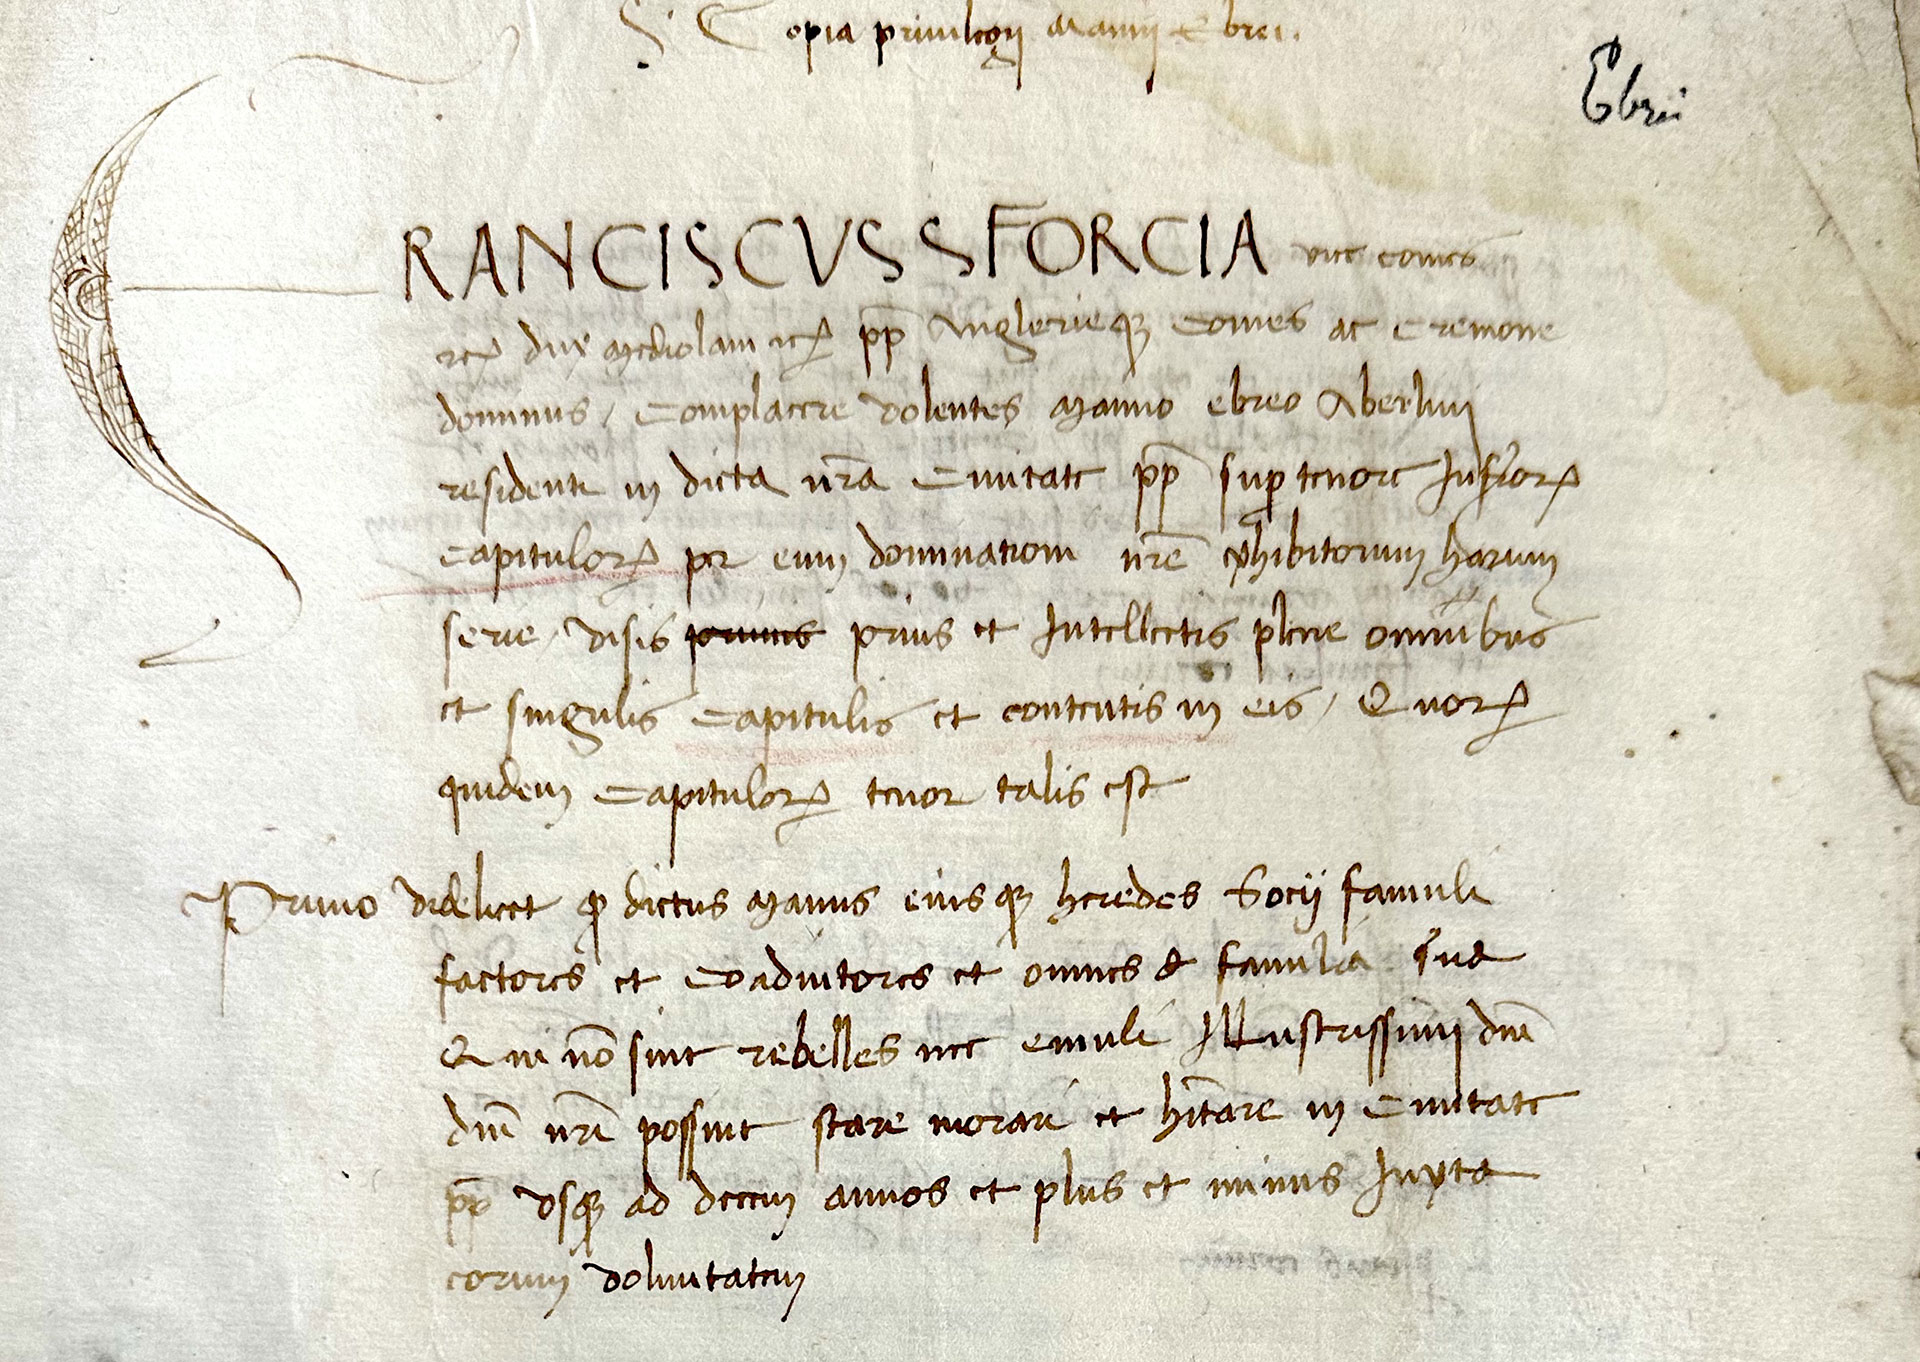 Copia privilegij Manni Ebrei.
Ebrei
FRANCISCUS SFORCIA vice comes
dux Mediolani pp Anglerieq Comes ac Cremone
dominus / Complacere volentes Manno ebreo Aberlini
residenti in dicta nra Civitate pp sup tenore Infrior
Capitulor per eum dominationi nre exhibitorum harum
serie / visis prius et Intellectis plene omnibus
et singulis Capitulis et contentis in eis / Quor
quidem Capitulor tenor talis est
Primo videlicet q dictus Manus eiusq heredes Socij famuli
factores et Coadiutores et omnes de familia sua
Qui non sint rebelles nec emuli Illustrissimi dni
dni nri possint stare morari et hitare in Civitate
pp usq ad decem annos et plus et minus Iuxta
eorum voluntatem